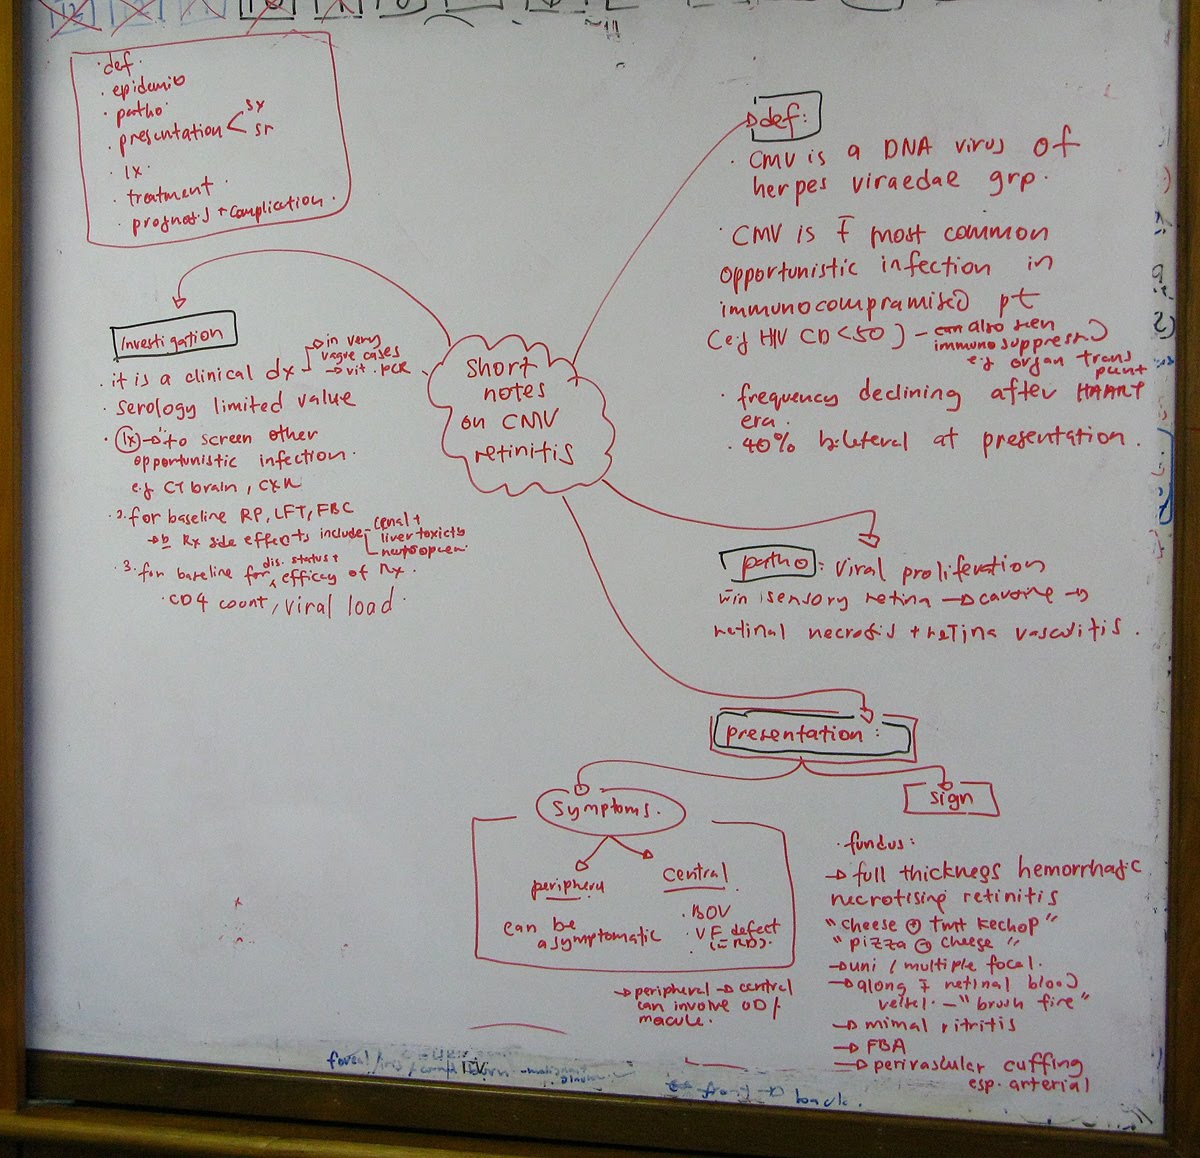 · def ·
· epidemio
· patho
· presentation < sx
sn
· Ix
· treatment ·
· prognosis + complication .
short
notes
on CMV
retinitis
def:
· CMV is a DNA virus of
herpes viraedae grp.
· CMV is most common
opportunistic infection in
immunocompramised pt
(eg HIV CD <50) - can also seen
immunosuppress
eg organ trans
plant
· frequency declining after HAART
era.
· 40% bilateral at presentation.
patho : viral proliferation
win sensory retina →
retinal necrosis + retina vasculitis .
presentation :
symptoms.
periphery
can be
asymptomatic
central
· BOV
· VF defect
→ peripheral → central
can involve OD /
macule.
sign
· fundus:
→ full thickness hemorrhagic
necrotising retinitis
"cheese tmt kechop"
"pizza cheese"
→ uni / multiple focal.
→ along retinal blood
vessel. - "brush fire"
→ mimal iritis
→ FBA
→ perivascular cuffing
esp. arterial
Investigation
· it is a clinical dx → in very
vague cases
→ vit. PCR
· serology limited value
· Ix → to screen other
opportunistic infection.
e.g CT brain, CXR
· 2. for baseline RP, LFT, FBC
Rx side effects include renal +
liver toxicity
neutropaen
· 3. for baseline for dis. status +
efficay of Rx .
· CD4 count, viral load ·
front → back.